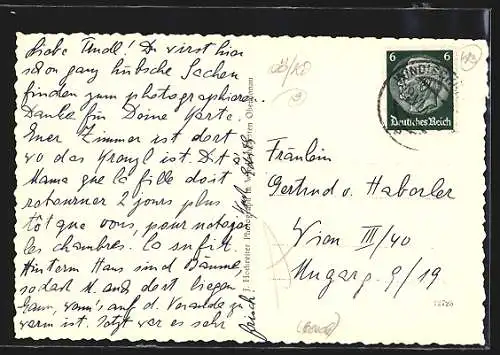 Liebe Trudl! Du wirst hier
schon ganz hübsche Sachen
finden zum photographieren.
Danke für Deine Karte.
Euer Zimmer ist dort
wo das ist. Dit à
Mama que la fille doit
retourner 2 jours plus
tôt que vous, pour
les chambres. Ca suffit.
Hinterm Haus sind Bäume,
sodass M. auch dort liegen
kann, wenn's auf d. Veranda zu
warm ist. Jetzt war es sehr
J. Hochreiter Photograph
6 6
Deutsches Reich
Fräulein
Gertrud v. Haberler
Wien III/40
Ungarg. 9/19